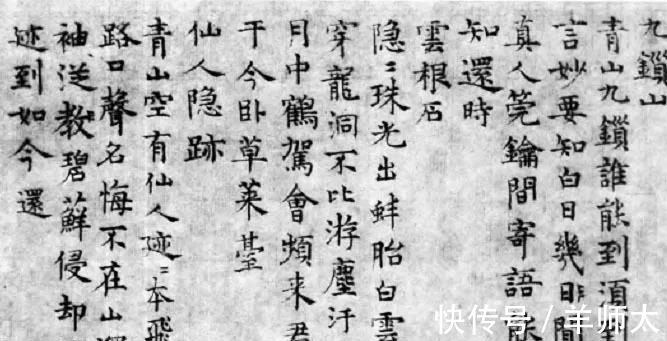 九鎖山
青山九鎖誰能到須
言妙要知白日幾時間
真人筦鑰間寄語
知還時
雲根石
隐〻珠光出蚌胎白雲
穿龍洞不比游塵汙
月中鶴駕會頻来君
于今卧草萊臺
仙人隐跡
青山空有仙人迹〻本飛
路口聲名悔不在山
袖从教碧蘚侵却
迹到如今還
快传号/羊师太